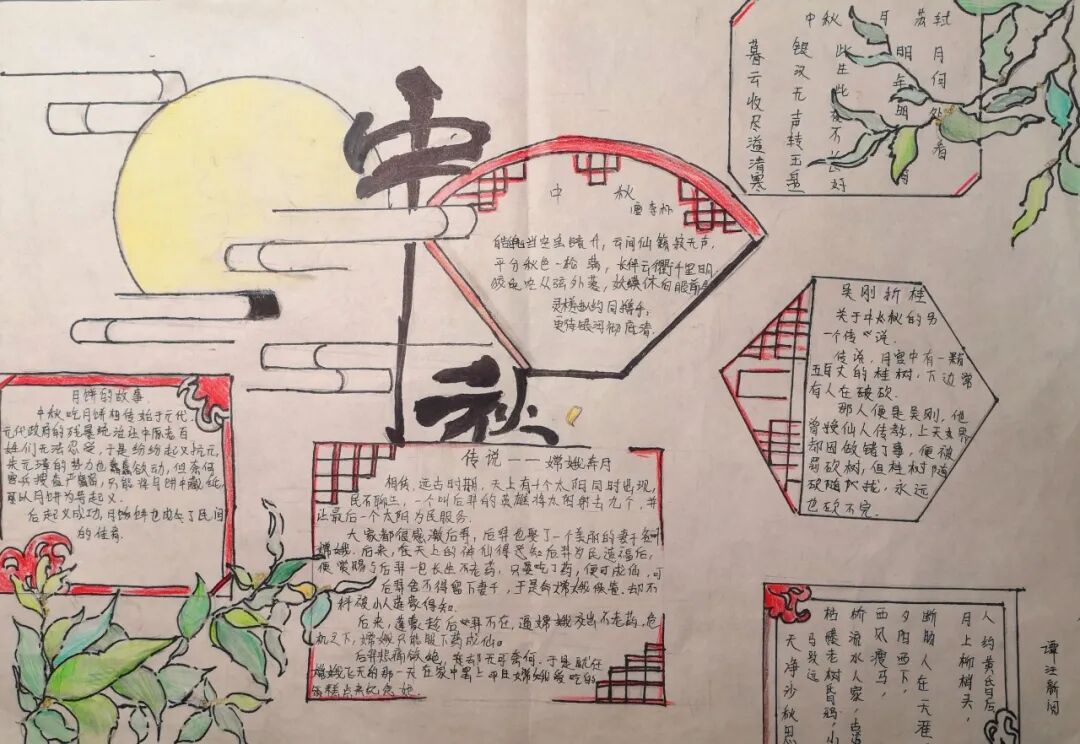 中秋
中秋月 苏轼
暮云收尽溢清寒
银汉无声转玉盘
此生此夜不长好
明年明月何处看
中秋
唐 李朴
皓魄当空宝镜升，云间仙籁寂无声，
平分秋色一轮满，长伴云衢千里明，
狡兔空从弦外落，妖蟆休向眼前
灵槎拟约同携手，
更待银河彻底清，
吴刚斩桂
关于中秋的另
一个传说.
传说，月宫中有一颗
五百丈的桂树，下边常
有人在砍.
那人便是吴刚，他
曾授仙人传教，上天界
却因做错了事，便被
罚砍树，但桂树随
砍随，永远
也砍不完.
月饼的故事.
中秋吃月饼相传始于元代.
元代政府的残暴统治让中原老百
姓们无法忍受，于是纷纷起义抗元，
朱元璋的势力也蠢蠢欲动，但奈何
官兵搜查严密，只能将月饼中藏纸
可以月饼为号起义.
后起义成功，月饼也成了民间
的佳肴.
传说——嫦娥奔月
相传，远古时期，天上有十个太阳同时出现，
民不聊生，一个叫后羿的英雄将太阳射去九个，并
让最后一个太阳为民服务.
大家都很感激后羿，后羿也娶了一个美丽的妻子名叫
嫦娥.后来，在天上的神仙得知后羿为民造福后，
便赏赐与后羿一包长生不老药，只要吃了药，便可成仙，可
后羿舍不得留下妻子，于是命嫦娥保管.却不
料被小人蓬蒙得知.
后来，蓬蒙趁后羿不在，逼嫦娥交出不老药，危
机之下，嫦娥只能服下药成仙.
后羿悲痛欲绝，却无可奈何.于是就在
嫦娥飞天的那一天在家中摆上平日嫦娥爱吃的
糕点来纪念她.
人约黄昏后
月上柳梢头，
断肠人在天涯
夕阳西下，
西风瘦马，
桥流水人家，古道
枯藤老树昏鸦，小
马致远
天净沙秋思
谭江新闻